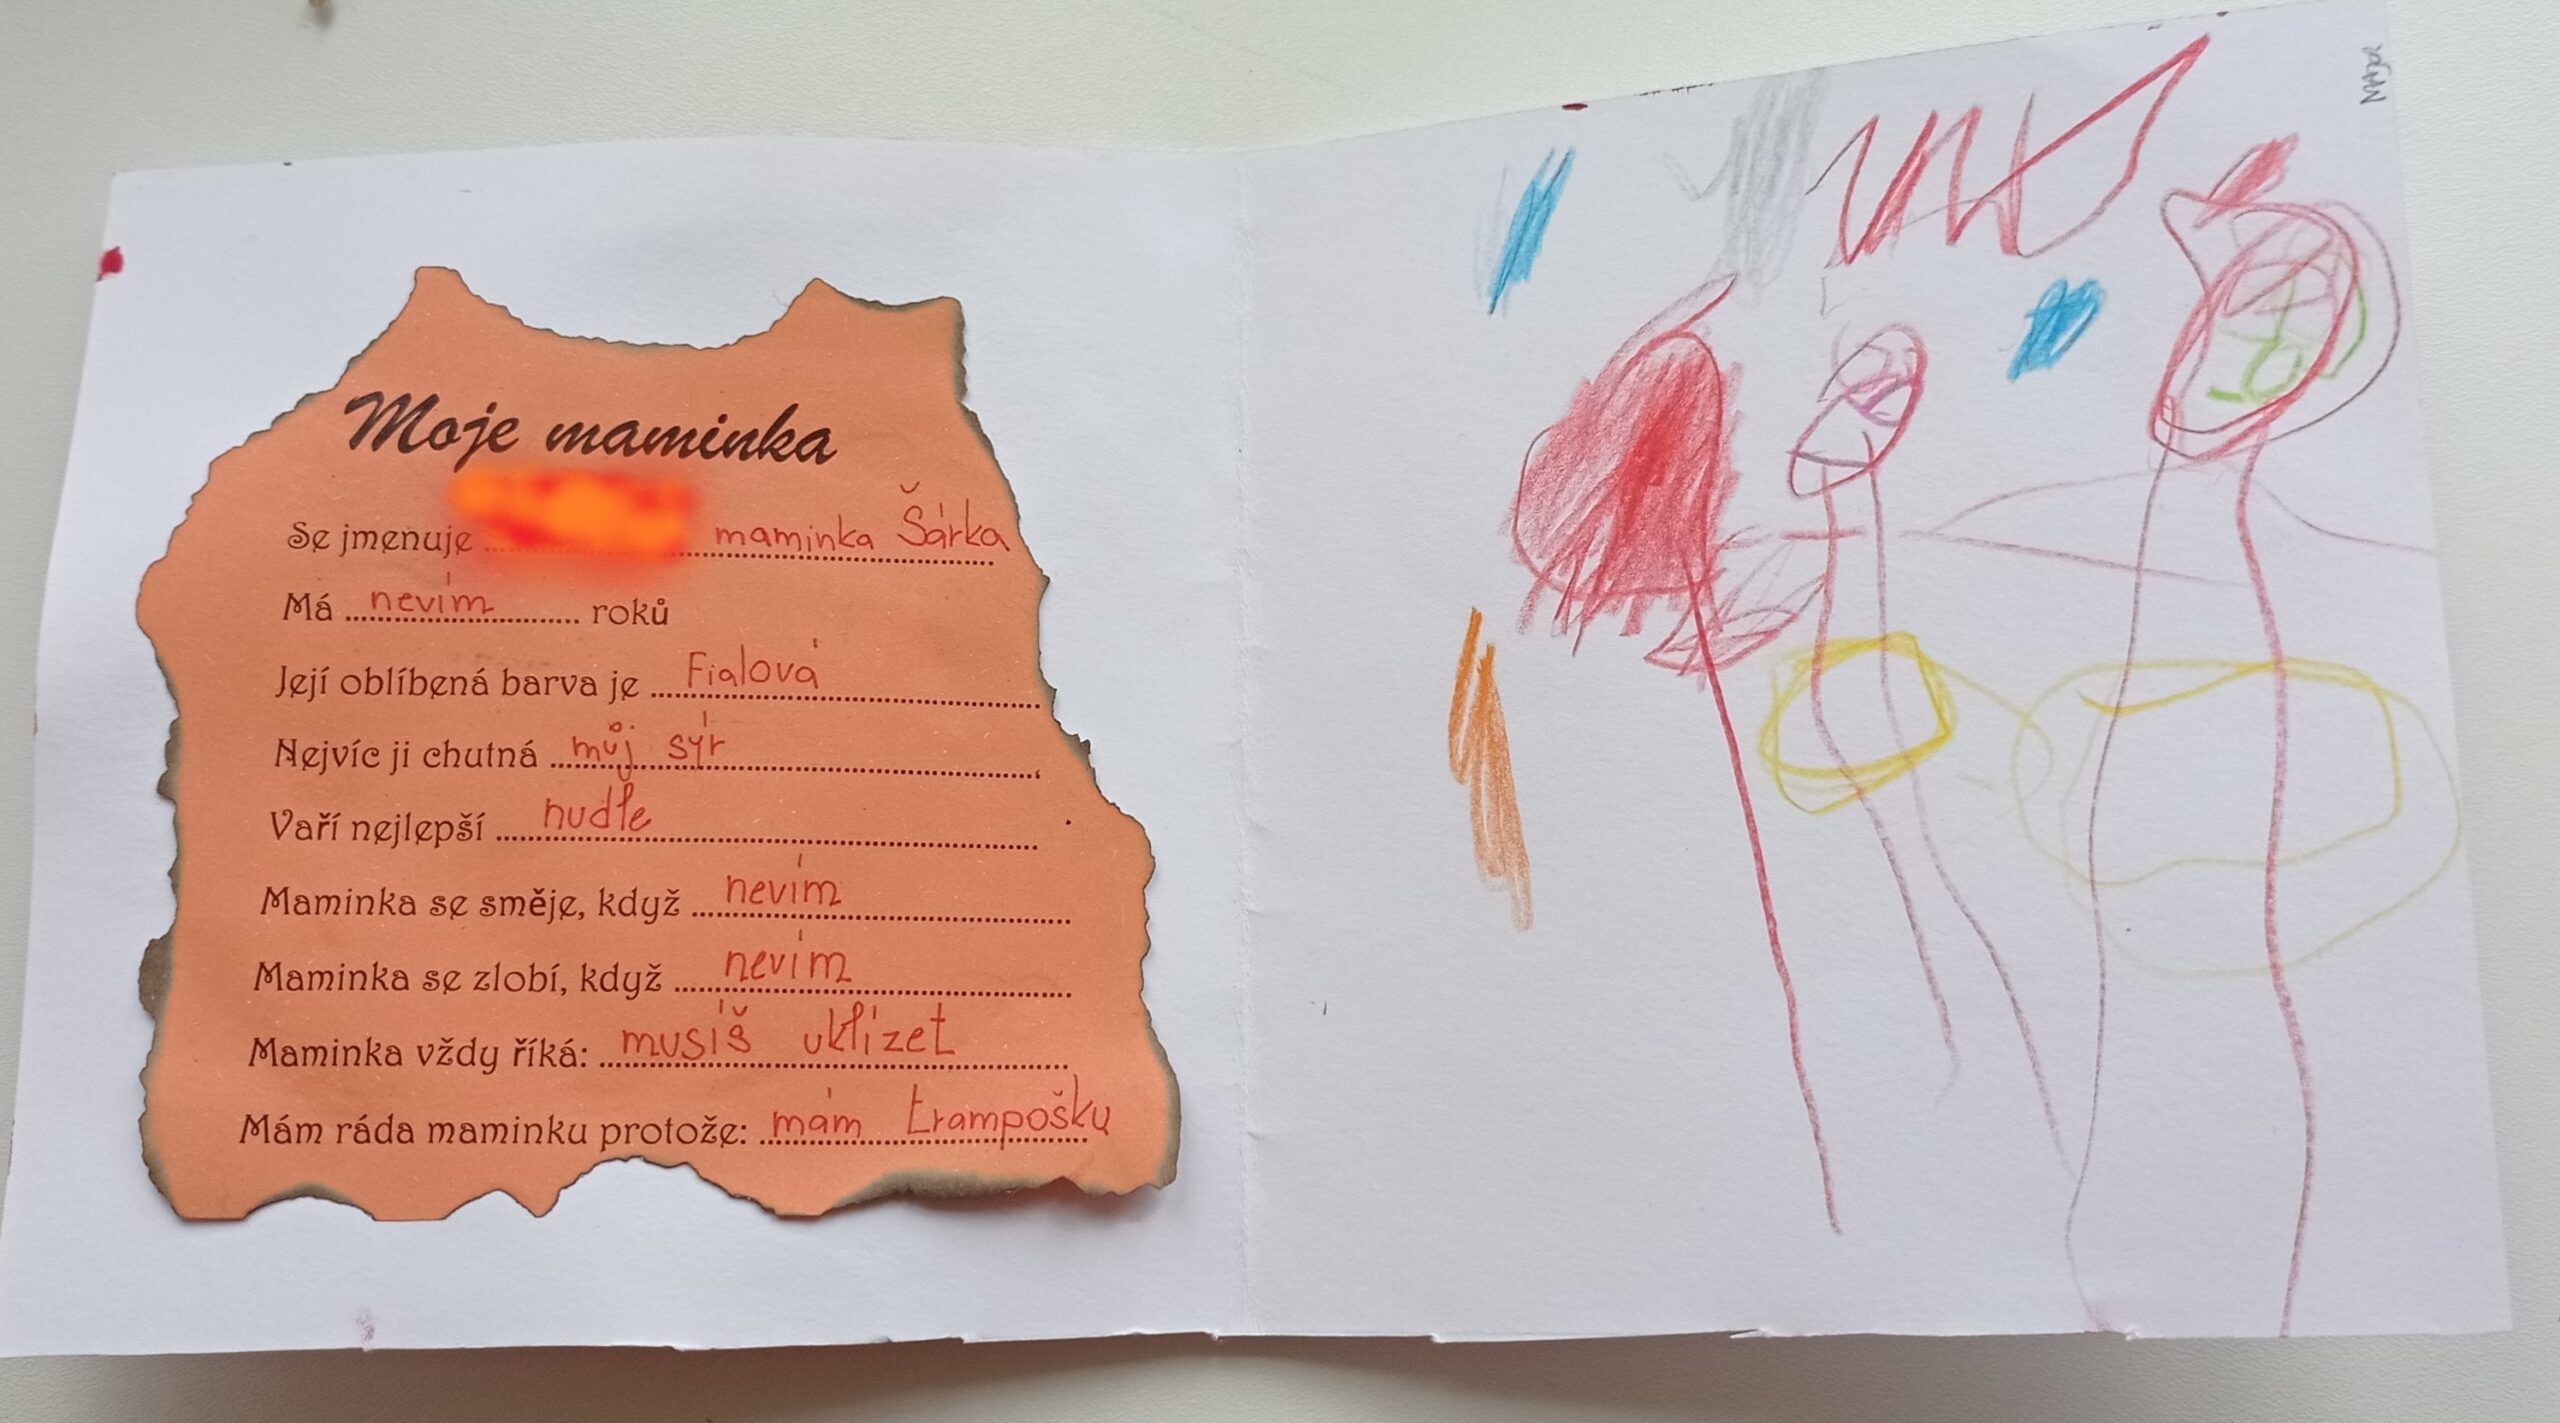 Moje maminka
Se jmenuje maminka Šárka
Má nevím roků
Její oblíbená barva je Fialová
Nejvíc ji chutná můj sýr
Vaří nejlepší nudle
Maminka se směje, když nevím
Maminka se zlobí, když nevím
Maminka vždy říká: musíš uklízet
Mám ráda maminku protože: mám trampošku